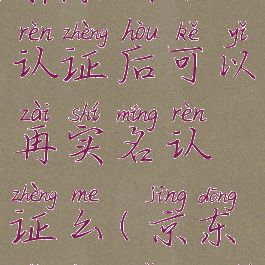 rèn zhèng hòu kě yǐ
认证后可以
zài shí míng rèn
再实名认
zhèng me jīng dōng
证么(京东